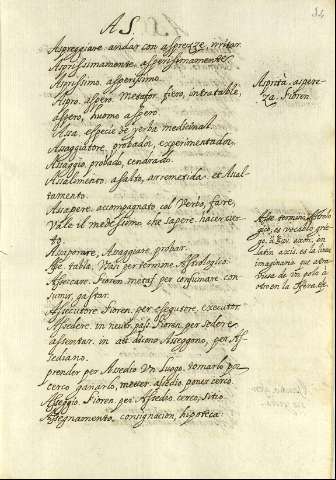 AS
Aspreggiare andar con asprezze, irritar
Asprissimamente, asperissimamente
Asprissimo, asperissimo.
Aspro, aspero. Metafor. fiero, intratable,
aspero, huomo aspero
Assa, especie de yerba medicinal.
Assaggiatore, probador, experimentador,
Assaggio, probado, cendrado.
Assalimento, asalto, arremetida. et Asal-
tamento.
Assapere, accompagnato col Verbo, fare,
Vale il medesimo, che sapere, hacer cier-
to.
Assaporare, Assaggiare, probar.
Asse, tabla,
per termine Astrologico.
Asseccare, Fioren. metaf. per consumare, con-
sumir, gastar.
Assecutore Fioren. per esegutore, executor
Assedere, in neut. pass. Fioren. per sedere
assentar. in att. dicono Asseggono, per As-
sediano.
prender per Assedio Un luogo, tomarlo por
cerco, ganarlo, meter asedio, poner cerco.
Asseggio, Fioren. per Assedio. cerco, sitio
Assegnamento, consignacion, hipoteca.
Asprità, aspere-
za, Fioren.
Asse, termine Astrolo-
gico, es vocablo grie-
go,
latin axis. es la linea
imaginaria que atra-
biesa de Un polo à
otro en la Esfera,